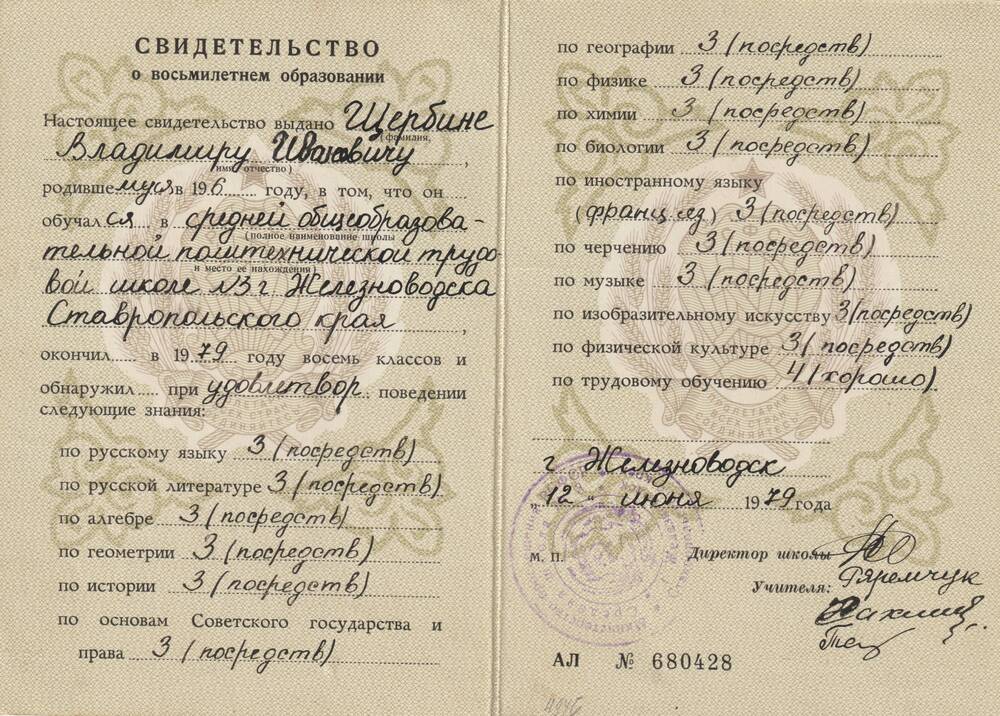 СВИДЕТЕЛЬСТВО
о восьмилетнем образовании
Настоящее свидетельство выдано Щербине
(фамилия,
Владимиру Ивановичу,
имя, отчество)
родившемуся в 196 году, в том, что он
обучался в средней общеобразова-
(полное наименование школы
тельной политехнической трудо
и место ее нахождения)
вой школе №3 г Железноводска
Ставропольского края,
окончил в 1979 году восемь классов и
обнаружил при удовлетвор. поведении
следующие знания:
по русскому языку 3 (посредств)
по русской литературе 3 (посредств)
по алгебре 3 (посредств)
по геометрии 3 (посредств)
по истории 3 (посредств)
по основам Советского государства и
права 3 (посредств)
по географии 3 (посредств)
по физике 3 (посредств)
по химии 3 (посредств)
по биологии 3 (посредств)
по иностранному языку
(француз) 3 (посредств)
по черчению 3 (посредств)
по музыке 3 (посредств)
по изобразительному искусству 3 (посредств)
по физической культуре 3 (посредств)
по трудовому обучению 4 (хорошо).
г Железноводск
„12" июня 1979 года
м. п.
Директор школы
Учителя: Яремчук
АЛ № 680428